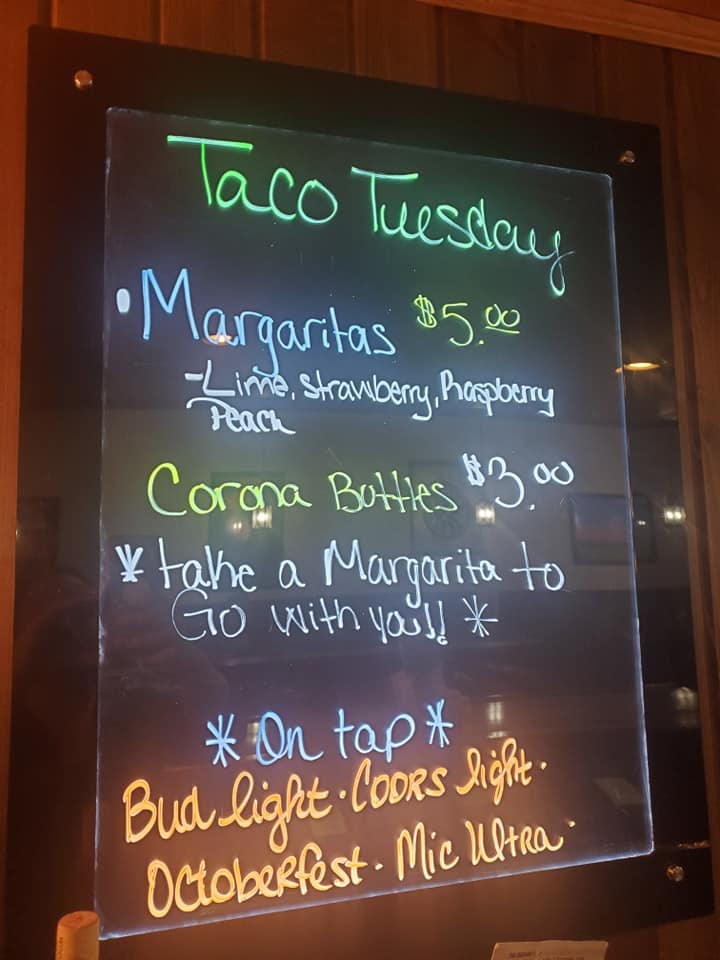 Taco Tuesday
• Margaritas $5.00
- Lime, Strawberry, Raspberry
Peach
Corona Bottles $3.00
* take a Margarita to
Go with you!! *
* On tap *
Bud light · Coors light ·
Octoberfest · Mic Ultra ·